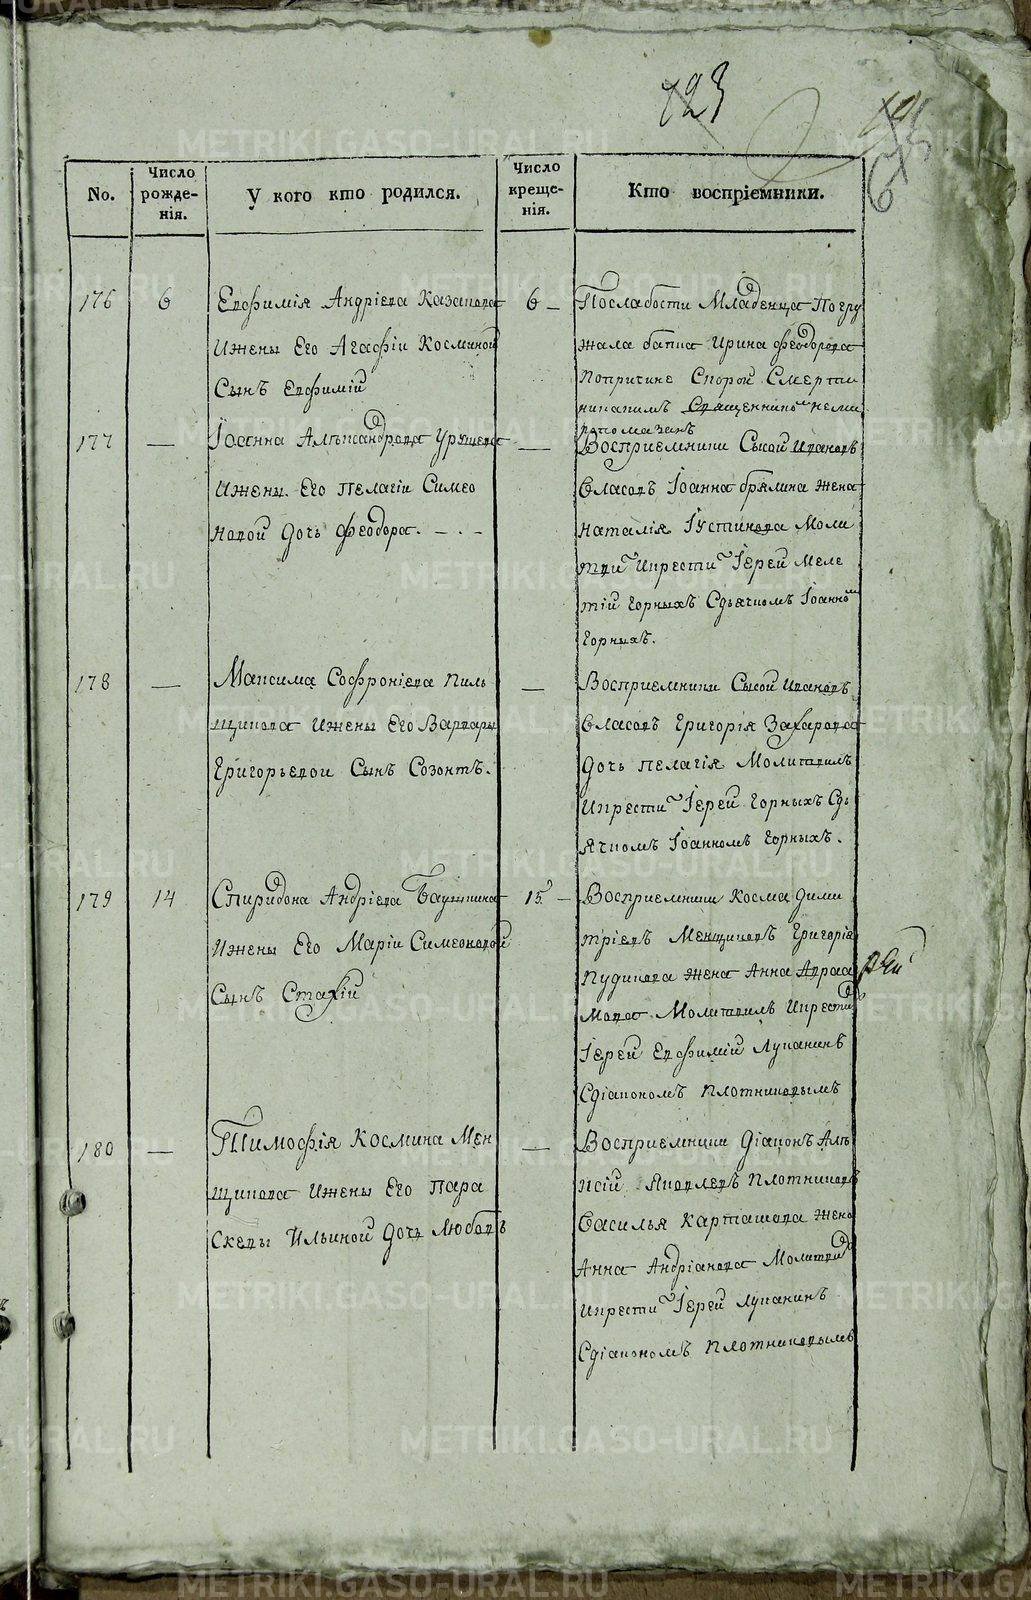 123
No.
Число рожде-нія.
У кого кто родился.
Число креще-нія.
Кто воспріемники.
176
6
Евфимія Андріева Казанова
Ижены Его Агафіи Косминой
Сынъ Евфимій
6 –
Послабости Младенца Погру
жала бапка Ирина Феодорова
Попричине Скорой Смерти
никакимъ Священникомъ неми
ропомазанъ
177
—
Іоанна Алѣксандрова
Ижены Его Пелагіи Симео
новой Дочь Феодора. – . –
—
Восприемники Сысой Ивановъ
Власовъ Іоанна брялина жена
Наталія Іустинова Моли
тви Икрести Іерей Меле
тій Горныхъ Сдьячкомъ Іоанном
Горныхъ.
178
—
Максима Софроніева Пиль
щикова Ижены Его Варвары
Григорьевои Сынъ Созонтъ.
—
Восприемники Сысой Ивановъ
Власовъ Григорія Захарова
Дочь Пелагія Молитвилъ
Икрести Іерей Горныхъ Сдь
ячкомъ Іоанномъ Горныхъ.
179
14
Спиридона Андріева
Ижены Его Маріи Симеоновой
Сынъ Стахій
15 –
Восприемники Косма Дими
тріевъ Менщиковъ Григорія
Пудикова жена Анна Авраа
мова Молитвилъ Икрести
Іерей Евфимій Луканинъ
Сдіакономъ Плотниковымъ
180
—
Тимофія Космина Мен
щикова Ижены Его Пара
Скевы Ильиной Дочь Любовъ
—
Восприемники Діаконъ Алѣ
ксій Яковлевъ Плотниковъ
Василья Карташова жена
Анна Андріанова Молитви
Икрести Іерей Луканинъ
Сдіакономъ Плотниковымъ
METRIKI.GASO-URAL.RU